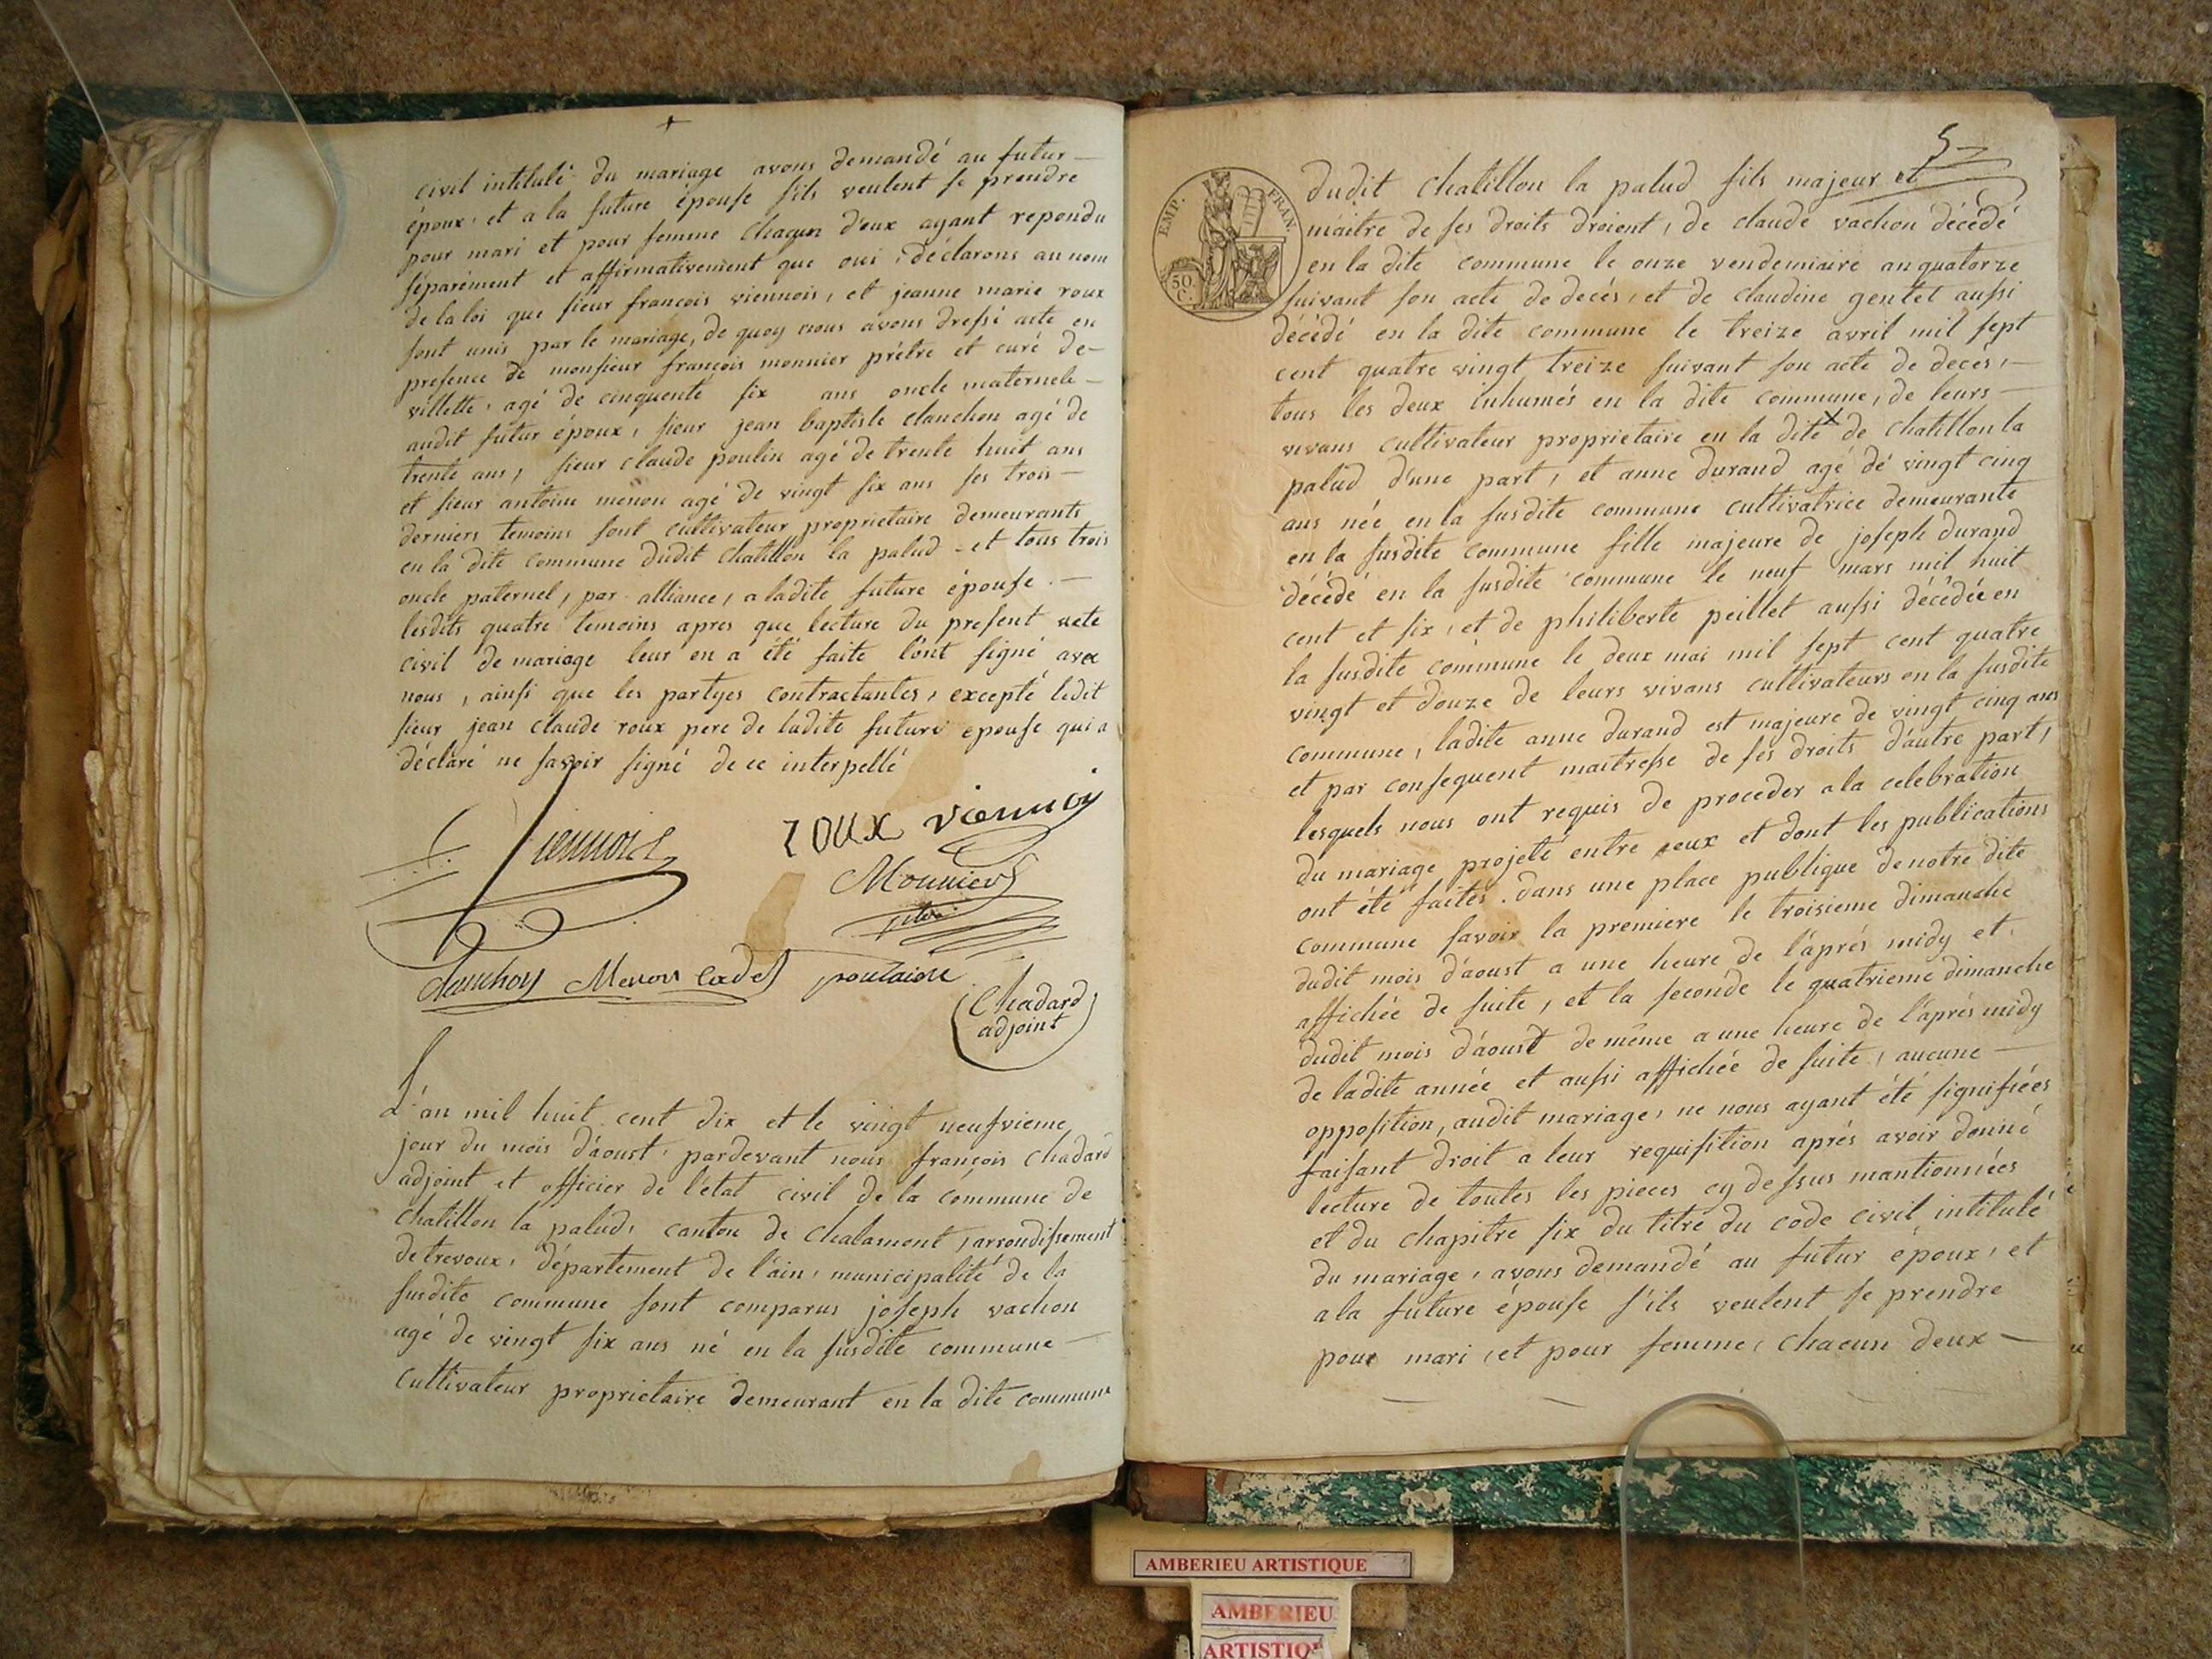 civil intitulé du mariage avons demandé au futur
époux, et a la future épouse s'ils veulent se prendre
pour mari et pour femme chacun d'eux ayant repondu
séparément et affirmativement que oui, déclarons au nom
de la loi que sieur francois viennois, et jeanne marie roux
sont unis par le mariage, de quoy nous avons dressé acte en
presence de monsieur françois monnier prêtre et curé de
villette, agé de cinquente six ans oncle maternele
audit futur époux, sieur jean baptiste clanchon agé de
trente ans, sieur claude poulin agé de trente huit ans
et sieur antoine menon agé de vingt six ans ses trois
derniers temoins sont cultivateur proprietaire demeurants
en la dite commune dudit chatillon la palud et tous trois
oncle paternel, par alliance, a ladite future épouse.
lesdits quatre temoins apres que lecture du present acte
civil de mariage leur en a été faite l'ont signé avec
nous, ainsi que les partyes contractantes, excepté ledit
sieur jean claude roux pere de ladite future epouse qui a
déclaré ne savoir signé de ce interpellé
viennois roux viennois
Monnier
clanchon Menon cadet
Chadard
adjoint
L'an mil huit cent dix et le vingt neufvieme
jour du mois d'aoust, pardevant nous françois Chadard
adjoint et officier de l'état civil de la commune de
chatillon la palud, canton de Chalamont, arrondissement
de trevoux, département de l'ain, municipalité de la
susdite commune sont comparus joseph vachon
agé de vingt six ans né en la susdite commune
cultivateur proprietaire demeurant en la dite commune
5
EMP. FRAN.
50 C.
dudit chatillon la palud fils majeur et
maitre de ses droits droient, de claude vachon décédé
en la dite commune le onze vendemiaire an quatorze
suivant son acte de decés, et de claudine gentet aussi
décédé en la dite commune le treize avril mil sept
cent quatre vingt treize suivant son acte de deces,
tous les deux inhumés en la dite commune, de leurs
vivans cultivateur proprietaire en la dite x de chatillon la
palud d'une part, et anne durand agé de vingt cinq
ans née en la susdite commune cultivatrice demeurante
en la susdite commune fille majeure de joseph durand
décédé en la susdite commune le neuf mars mil huit
cent et six, et de philiberte peillet aussi décédée en
la susdite commune le deux mai mil sept cent quatre
vingt et douze de leurs vivans cultivateurs en la susdite
commune, ladite anne durand est majeure de vingt cinq ans
et par consequent maitresse de ses droits d'autre part,
lesquels nous ont requis de proceder a la celebration
du mariage projeté entre eux et dont les publications
ont été faites. dans une place publique de notre dite
commune savoir la premiere le troisieme dimanche
dudit mois d'aoust a une heure de l'aprés midy et
affichée de suite, et la seconde le quatrieme dimanche
dudit mois d'aoust de même a une heure de l'aprés midy
de ladite année et aussi affichée de suite, aucune
opposition, audit mariage, ne nous ayant été signifiées
faisant droit a leur requisition aprés avoir donné
lecture de toutes les pieces cy dessus mantionnées
et du chapitre six du titre du code civil intitulé
du mariage, avons demandé au futur époux, et
a la future épouse s'ils veulent se prendre
pour mari, et pour femme, chacun deux
AMBERIEU ARTISTIQUE
AMBERIEU